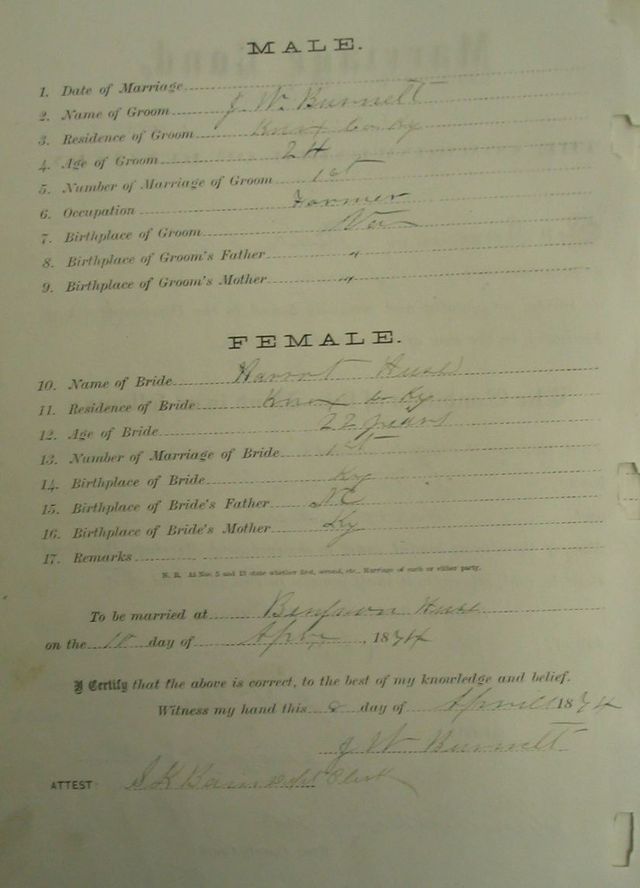 MALE.
1. Date of Marriage
2. Name of Groom J. W. Burnett
3. Residence of Groom Knox Co Ky
4. Age of Groom 24
5. Number of Marriage of Groom 1st
6. Occupation Farmer
7. Birthplace of Groom Va
8. Birthplace of Groom's Father "
9. Birthplace of Groom's Mother "
FEMALE.
10. Name of Bride
11. Residence of Bride Knox Co Ky
12. Age of Bride 22 years
13. Number of Marriage of Bride 1st
14. Birthplace of Bride Ky
15. Birthplace of Bride's Father NC
16. Birthplace of Bride's Mother Ky
17. Remarks
N. B. At Nos. 5 and 13 state whether first, second, etc., Marriage of each or either party.
To be married at
on the 10 day of , 1874
I Certify that the above is correct, to the best of my knowledge and belief.
Witness my hand this day of April 1874
J W Burnett
ATTEST: S K Bain Clerk